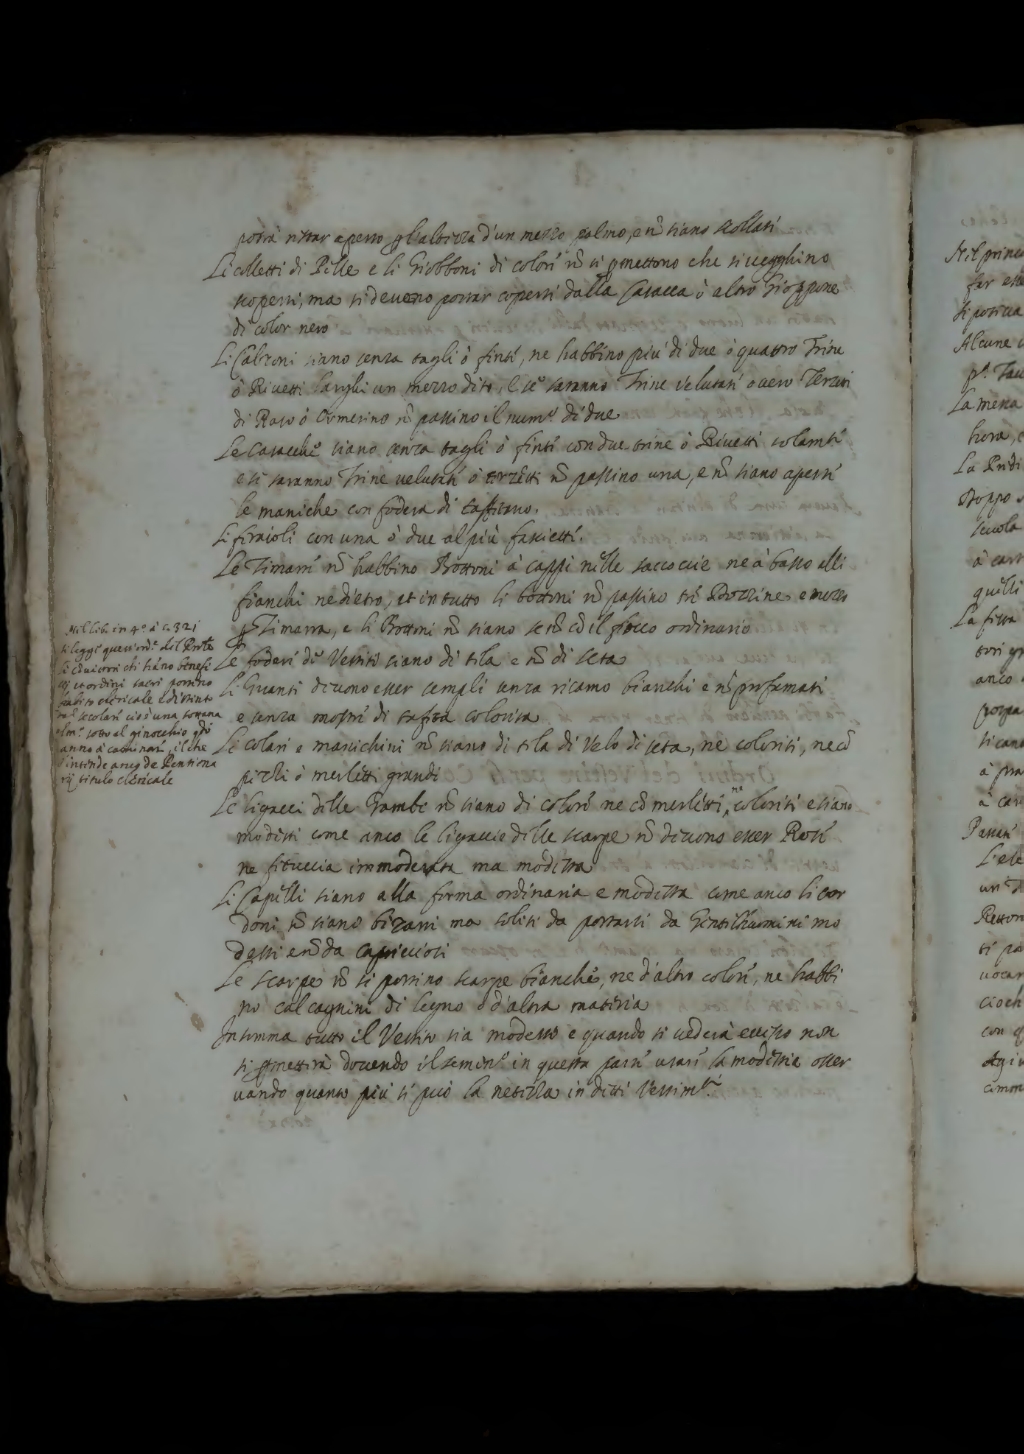 potrà restar aperto p l'altezza d'un mezzo palmo, e nō siano scollati
Li colletti di Pelle e li Giobboni di colori nō si pmettono che si vegghino
scoperti, ma si devono portar coperti dalla Casacca ò altro Gioppone
di color nero
Li Calzoni siano senza tagli ò finti, ne habbino più di due ò quattro Trine
ò Rivetti larghi un mezzo dito, E se saranno Trine velutati overo Terzeti
di Raso ò Ormesino nō passino il num.º di due
Le Casacche siano senza tagli ò finti con due trine ò Rivetti solamti
e si saranno Trine velutati ò terzetti nō passino una, e nō siano aperti
le maniche con fodera di taffettano.
Li firaioli con una ò due al più fascietti.
Le Zimarre nō habbino Bottoni à cappi nelle saccoccie ne à basso alli
fianchi ne dietro, et in tutto li bottoni nō passino tre Dozzine e mezza
p Zimarra, e li Bottoni nō siano se nō cō il fiocco ordinario
Le foderi de Vestiti siano di tela e nō di seta
Li Guanti devono esser sempli senza ricamo bianchi e nō profumati
e senza mostre di taffetà colorita
Le colari e manichini nō siano di tela di Velo di seta, ne coloriti, ne cō
pizzi ò merletti grandi
Le ligacci delle Gambe nō siano di colori ne cō merletti, ne coloriti e siano
modesti come anco le ligaccie delle scarpe nō devono esser Rose
ne fituccia immoderata ma modesta
Li Capelli siano alla forma ordinaria e modesta come anco li cor
doni, nō siano bizarri ma soliti da portarsi da Gentilhuomini mo
desti e nō da capricciosi
Le scarpe nō si portino scarpe bianche, ne d'altro colori, ne habbi
no calcagnini di legno ò d'altra materia
In somma tutto il Vestito sia modesto e quando si vederà eccesso non
si pmetterà dovendo il semin.º in questa parte usari la modestia osser
vando quanto più si può la netezza in detti Vestim.ti
Nel lib. in 4.º à c. 321
si legge quest'ord.e del Porta
li convittori chi hāno benefi
cij et ordini sacri portino
habito clericale e distinto
da secolari cioè una sottana
sotto al ginocchio
anno à caminari, il che
s'intende anco de Pentiona
rij titulo clericale
Nel princ
far ess
Alcune
La mensa
hora, e
scuola
quelli
La festa
anco
à ca
Passati
L'ele
un
Retton
ti po
vocar
cioch
con q